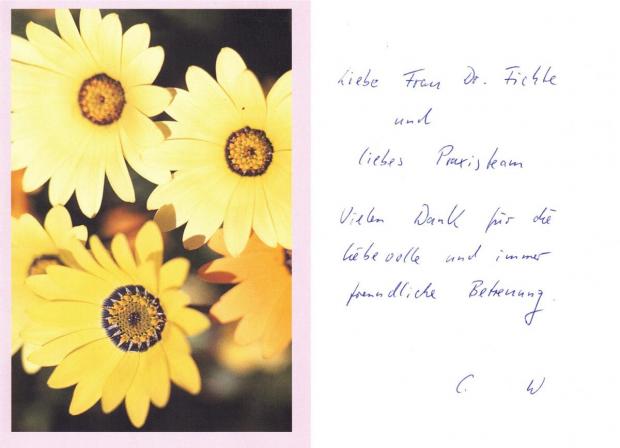 Liebe Frau Dr. Fichte
und
liebes Praxisteam
Vielen Dank für die
liebevolle und immer
freundliche Betreuung.
C. W